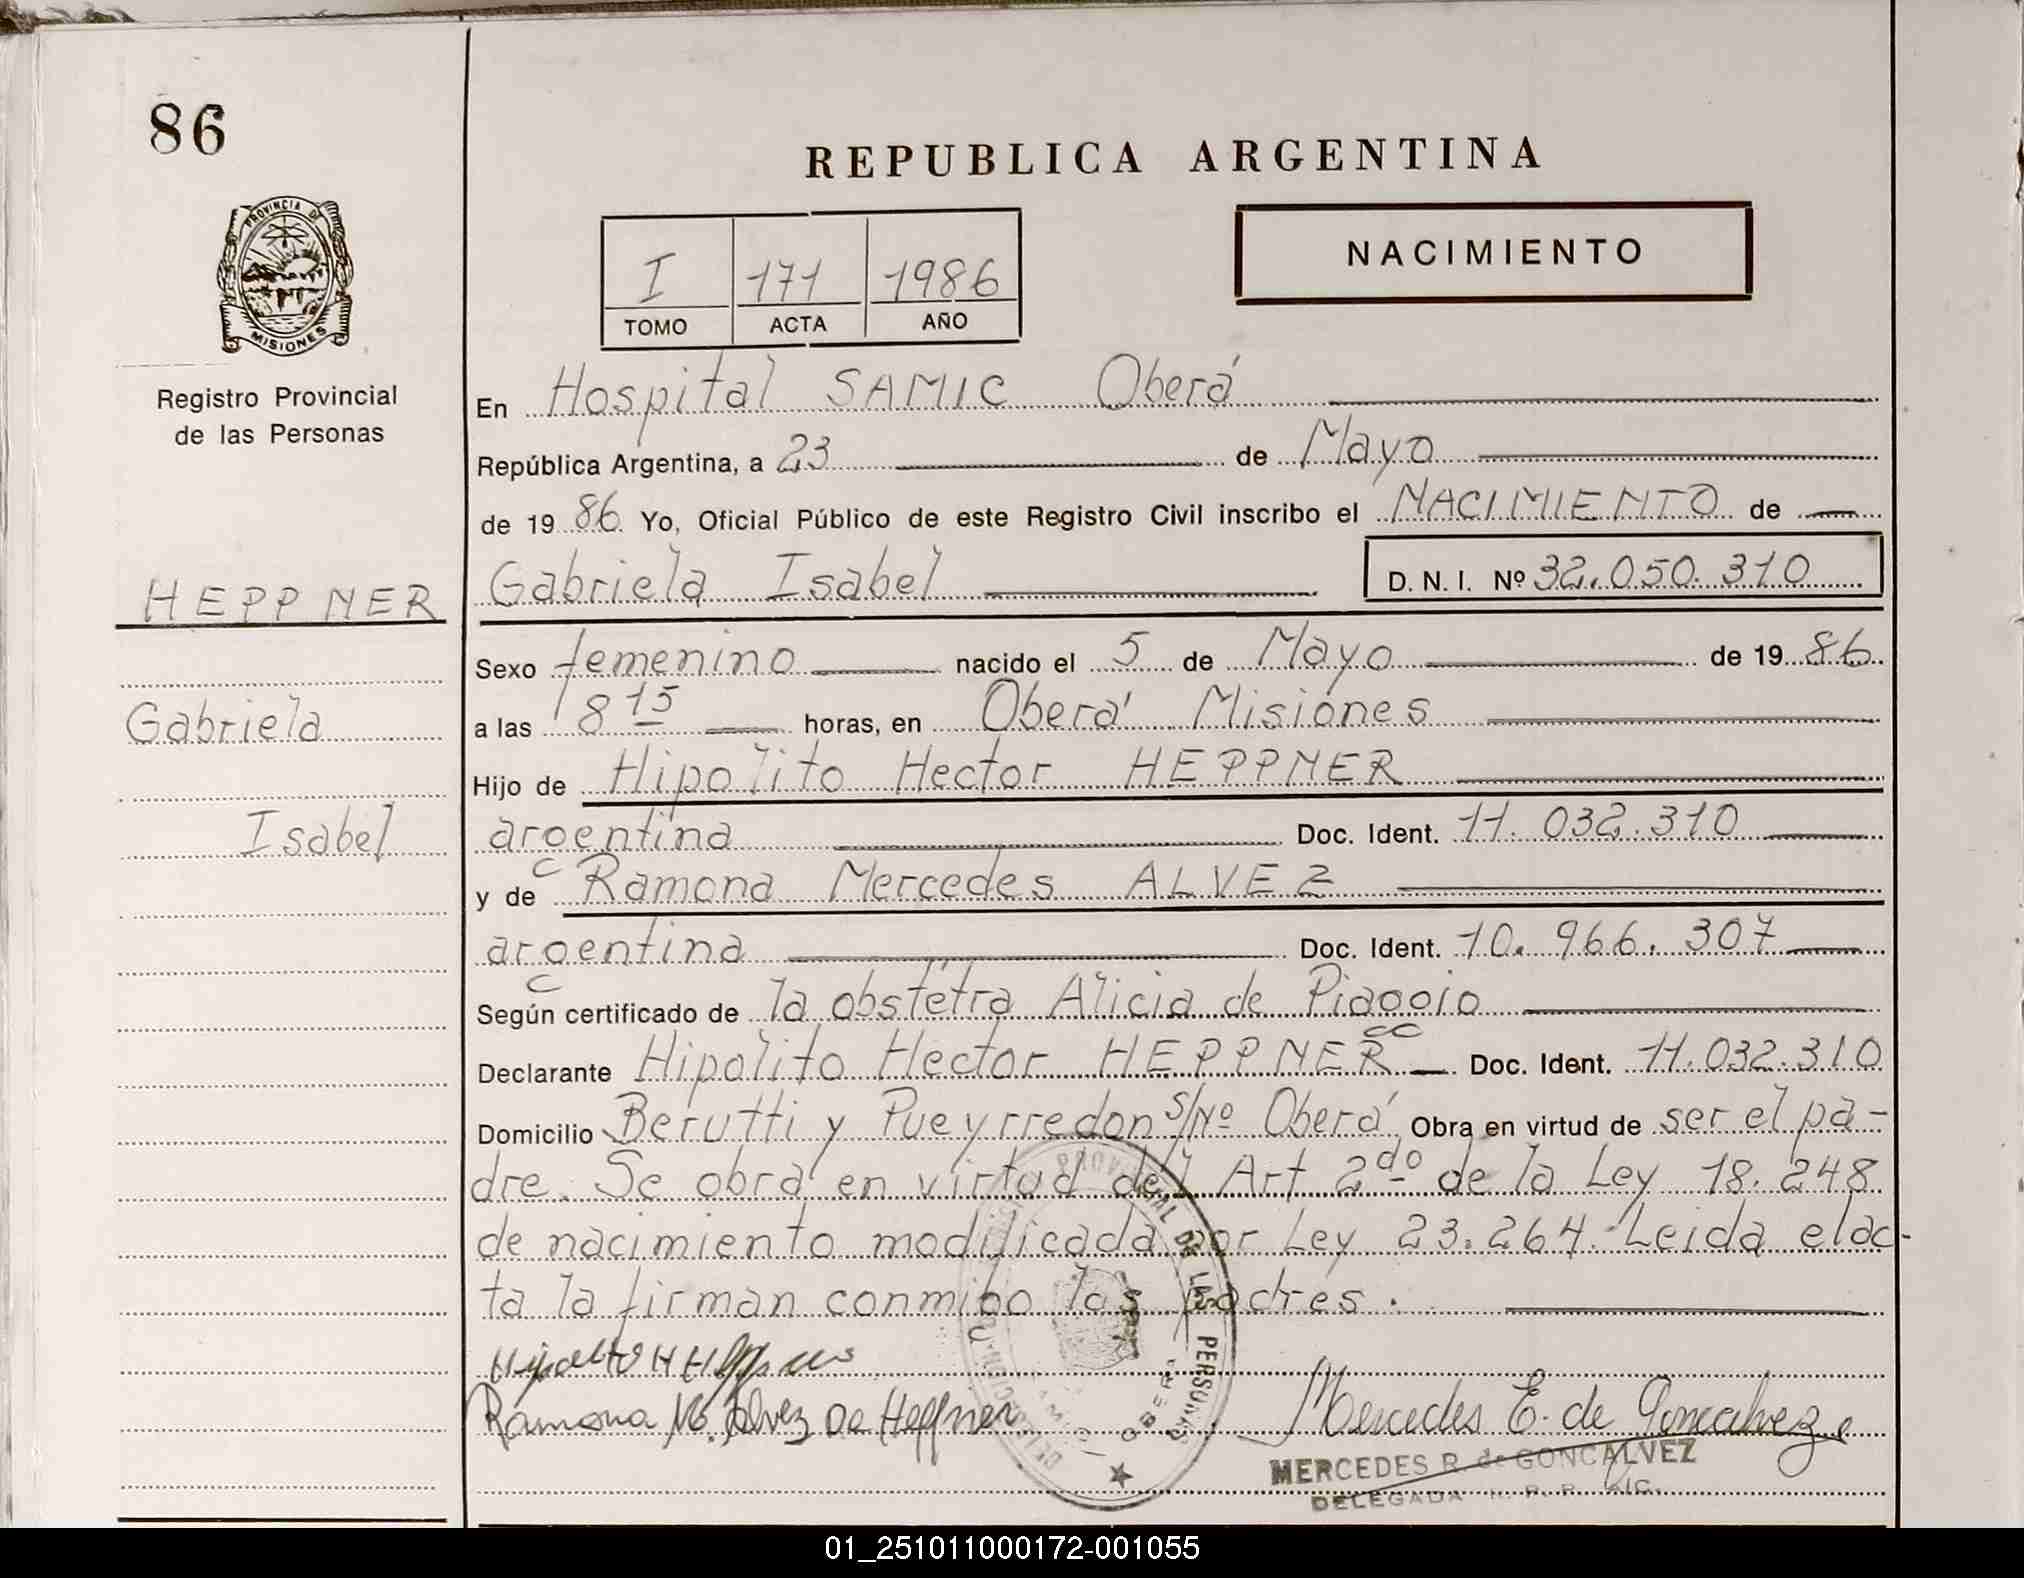 86
REPUBLICA ARGENTINA
PROVINCIA DE
MISIONES
I 171 1986
TOMO ACTA AÑO
NACIMIENTO
Registro Provincial
de las Personas
En Hospital SAMIC Oberá
República Argentina, a 23 de Mayo
de 19 86 Yo, Oficial Público de este Registro Civil inscribo el NACIMIENTO de
HEPPNER
Gabriela Isabel D. N. I. Nº 32.050.310
Sexo femenino nacido el 5 de Mayo de 19 86
Gabriela
a las 8 15 horas, en Oberá Misiones
Hijo de Hipolito Hector HEPPNER
Isabel
argentina Doc. Ident. 11.032.310
y de Ramona Mercedes ALVEZ
argentina Doc. Ident. 10.966.307
Según certificado de la obstétra Alicia de Piaggio
Declarante Hipolito Hector HEPPNER Doc. Ident. 11.032.310
Domicilio Berutti y Pueyrredon S/Nº Oberá Obra en virtud de ser el pa-
dre. Se obra en virtud del Art 2do de la Ley 18.248
de nacimiento modificada por Ley 23.264. Leida el ac-
ta la firman conmigo los padres.
Hipolito H Heppner
Ramona M. Alvez De Heppner
PROVINCIAL DE LAS PERSONAS
OBERA
Mercedes E. de Goncalvez
MERCEDES R. de GONCALVEZ
DELEGADA R. P. P.
01_251011000172-001055